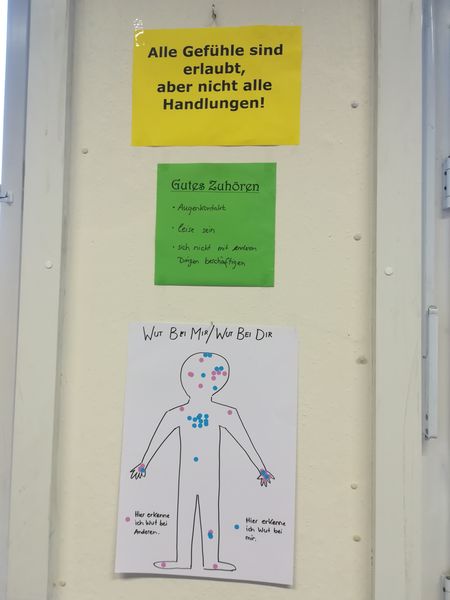 Alle Gefühle sind
erlaubt,
aber nicht alle
Handlungen!
Gutes Zuhören
• Augenkontakt
• leise sein
• sich nicht mit anderen
Dingen beschäftigen
WUT BEI MIR/WUT BEI DIR
Hier erkenne
ich Wut bei
Anderen.
Hier erkenne
ich Wut bei
mir.